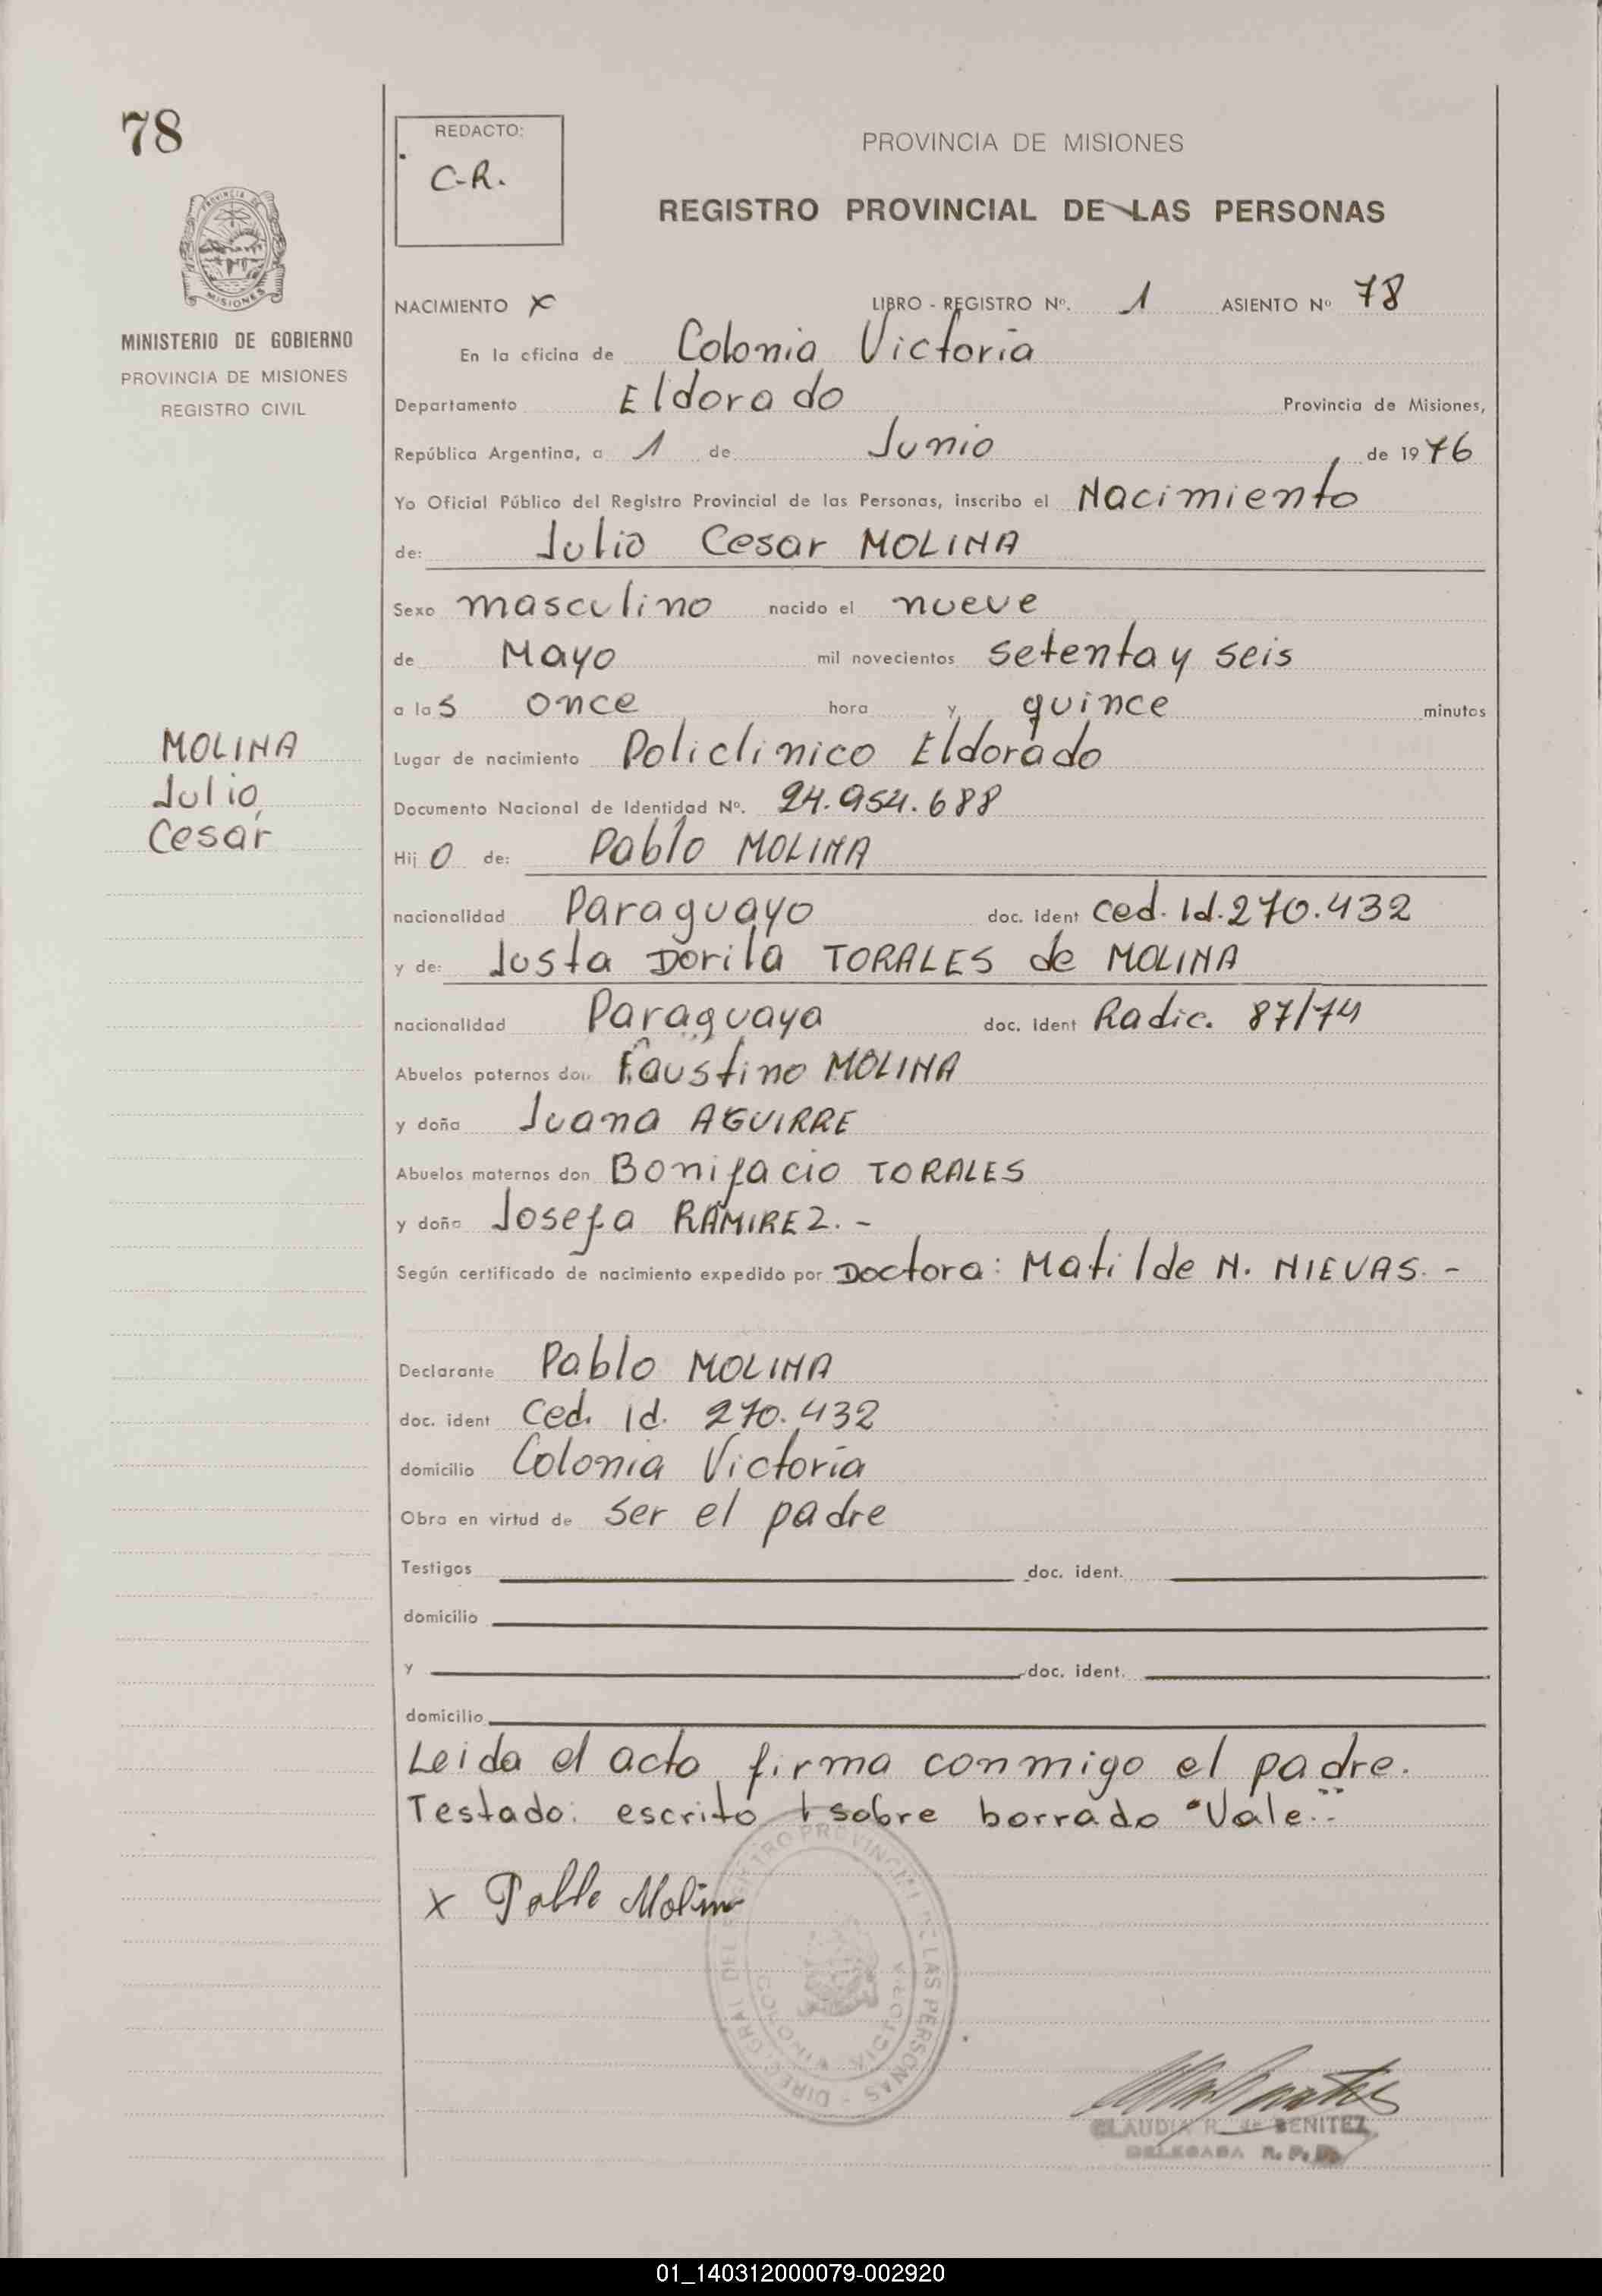 78
PROVINCIA DE
MISIONES
MINISTERIO DE GOBIERNO
PROVINCIA DE MISIONES
REGISTRO CIVIL
MOLINA
Julio
Cesar
REDACTO:
C-R.
PROVINCIA DE MISIONES
REGISTRO PROVINCIAL DE LAS PERSONAS
NACIMIENTO X LIBRO - REGISTRO Nº. 1 ASIENTO Nº 78
En la oficina de Colonia Victoria
Departamento Eldorado Provincia de Misiones,
República Argentina, a 1 de Junio de 1976
Yo Oficial Público del Registro Provincial de las Personas, inscribo el Nacimiento
de: Julio Cesar MOLINA
Sexo masculino nacido el nueve
de Mayo mil novecientos setenta y seis
a las once hora y quince minutos
Lugar de nacimiento Policlinico Eldorado
Documento Nacional de Identidad Nº. 24.954.688
Hijo de: Pablo MOLINA
nacionalidad Paraguayo doc. ident Ced. Id. 270.432
y de: Justa Dorila TORALES de MOLINA
nacionalidad Paraguaya doc. ident Radic. 87/74
Abuelos paternos don Faustino MOLINA
y doña Juana AGUIRRE
Abuelos maternos don Bonifacio TORALES
y doña Josefa RAMIREZ. -
Según certificado de nacimiento expedido por Doctora: Matilde N. NIEVAS. -
Declarante Pablo MOLINA
doc. ident Ced. Id. 270.432
domicilio Colonia Victoria
Obra en virtud de ser el padre
Testigos doc. ident.
domicilio
y doc. ident.
domicilio
Leida el acta firma conmigo el padre.
Testado: escrito sobre borrado "Vale".-
X Pablo Molina
DIREC. GRAL. DEL REGISTRO PROVINCIAL DE LAS PERSONAS -
COLONIA VICTORIA
CLAUDIA R. de BENITEZ
DELEGADA R. P. P.
01_140312000079-002920